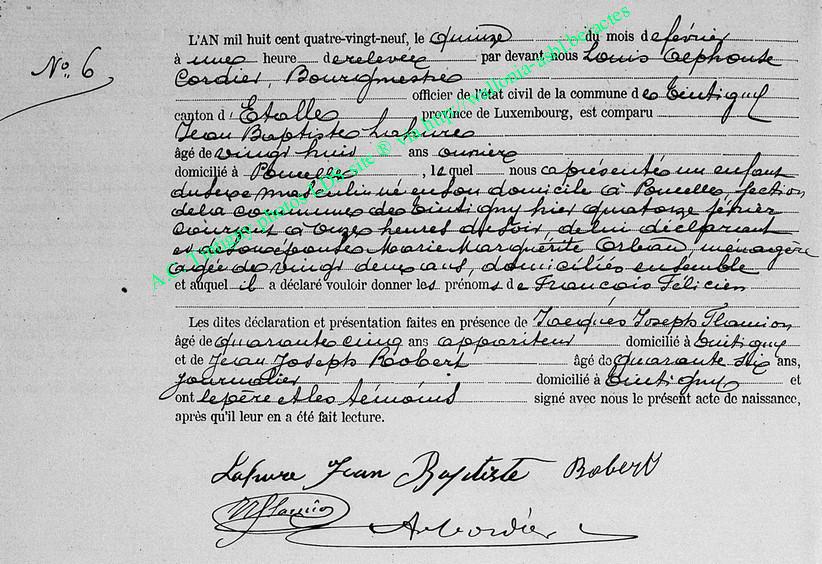 No 6
L'AN mil huit cent quatre-vingt-neuf, le quinze du mois de février
à une heure de relevée par devant nous Louis Alphonse
Cordier, Bourgmestre
officier de l'état civil de la commune de Tintigny
canton d'Etalle province de Luxembourg, est comparu
Jean Baptiste Lafure
âgé de vingt huit ans ouvrier
domicilié à Poncelle, lequel nous a présenté un enfant
du sexe masculin né en son domicile à Poncelle, section
de la commune de Tintigny hier quatorze février
courant à onze heures du soir, de lui déclarant
et de son épouse Marie Marguerite Orban, ménagère
agée de vingt deux ans, domiciliés ensemble
et auquel il a déclaré vouloir donner les prénoms de François Félicien
Les dites déclaration et présentation faites en présence de Jacques Joseph Flamion
âgé de quarante cinq ans appariteur domicilié à Tintigny
et de Jean Joseph Robert âgé de quarante six ans,
journalier domicilié à Tintigny et
ont le père et les témoins signé avec nous le présent acte de naissance,
après qu'il leur en a été fait lecture.
Lafure Jean Baptiste Robert
Flamion
Cordier
A.C. Tintigny photos LDA site ® via http://wallonia-asbl.be/actes